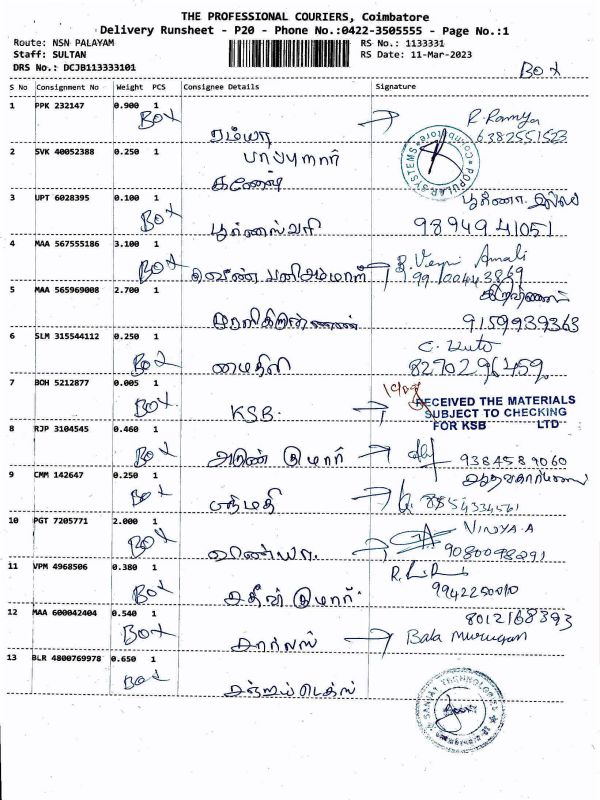 THE PROFESSIONAL COURIERS, Coimbatore
Delivery Runsheet - P20 - Phone No.:0422-3505555 - Page No.:1
Route: NSN PALAYAM RS No.: 1133331
Staff: SULTAN RS Date: 11-Mar-2023
DRS No.: DCJB113333101
BOX
S No Consignment No Weight PCS Consignee Details Signature
1 PPK 232147 0.900 1 R. Ramya
BOX ரம்யா 6382551523
2 SVK 40052388 0.250 1 பாப்புநாரி
POPULAR SYSTEMS Coimbatore
கணேஷ்
3 UPT 6028395 0.100 1
BOX 9894941051
4 MAA 567555186 3.100 1 B. Veni Amali
BOX
5 MAA 565969008 2.700 1
9159939363
6 SLM 315544112 0.250 1
BOX மைதிலி 8270296459
7 BOH 5212877 0.005 1
BOX KSB. RECEIVED THE MATERIALS
SUBJECT TO CHECKING
FOR KSB LTD
8 RJP 3104545 0.460 1
BOX அருண் குமார் 9384589060
9 CMM 142647 0.250 1
BOX
10 PGT 7205771 2.000 1 VINYA.A
BOX 9080098291
11 VPM 4968506 0.380 1
BOX சதீஸ் குமார்
12 MAA 600042404 0.540 1 8012168393
BOX Bala Murugan
13 BLR 4800769978 0.650 1
BOX
SANJAY TECHNOLOGIES